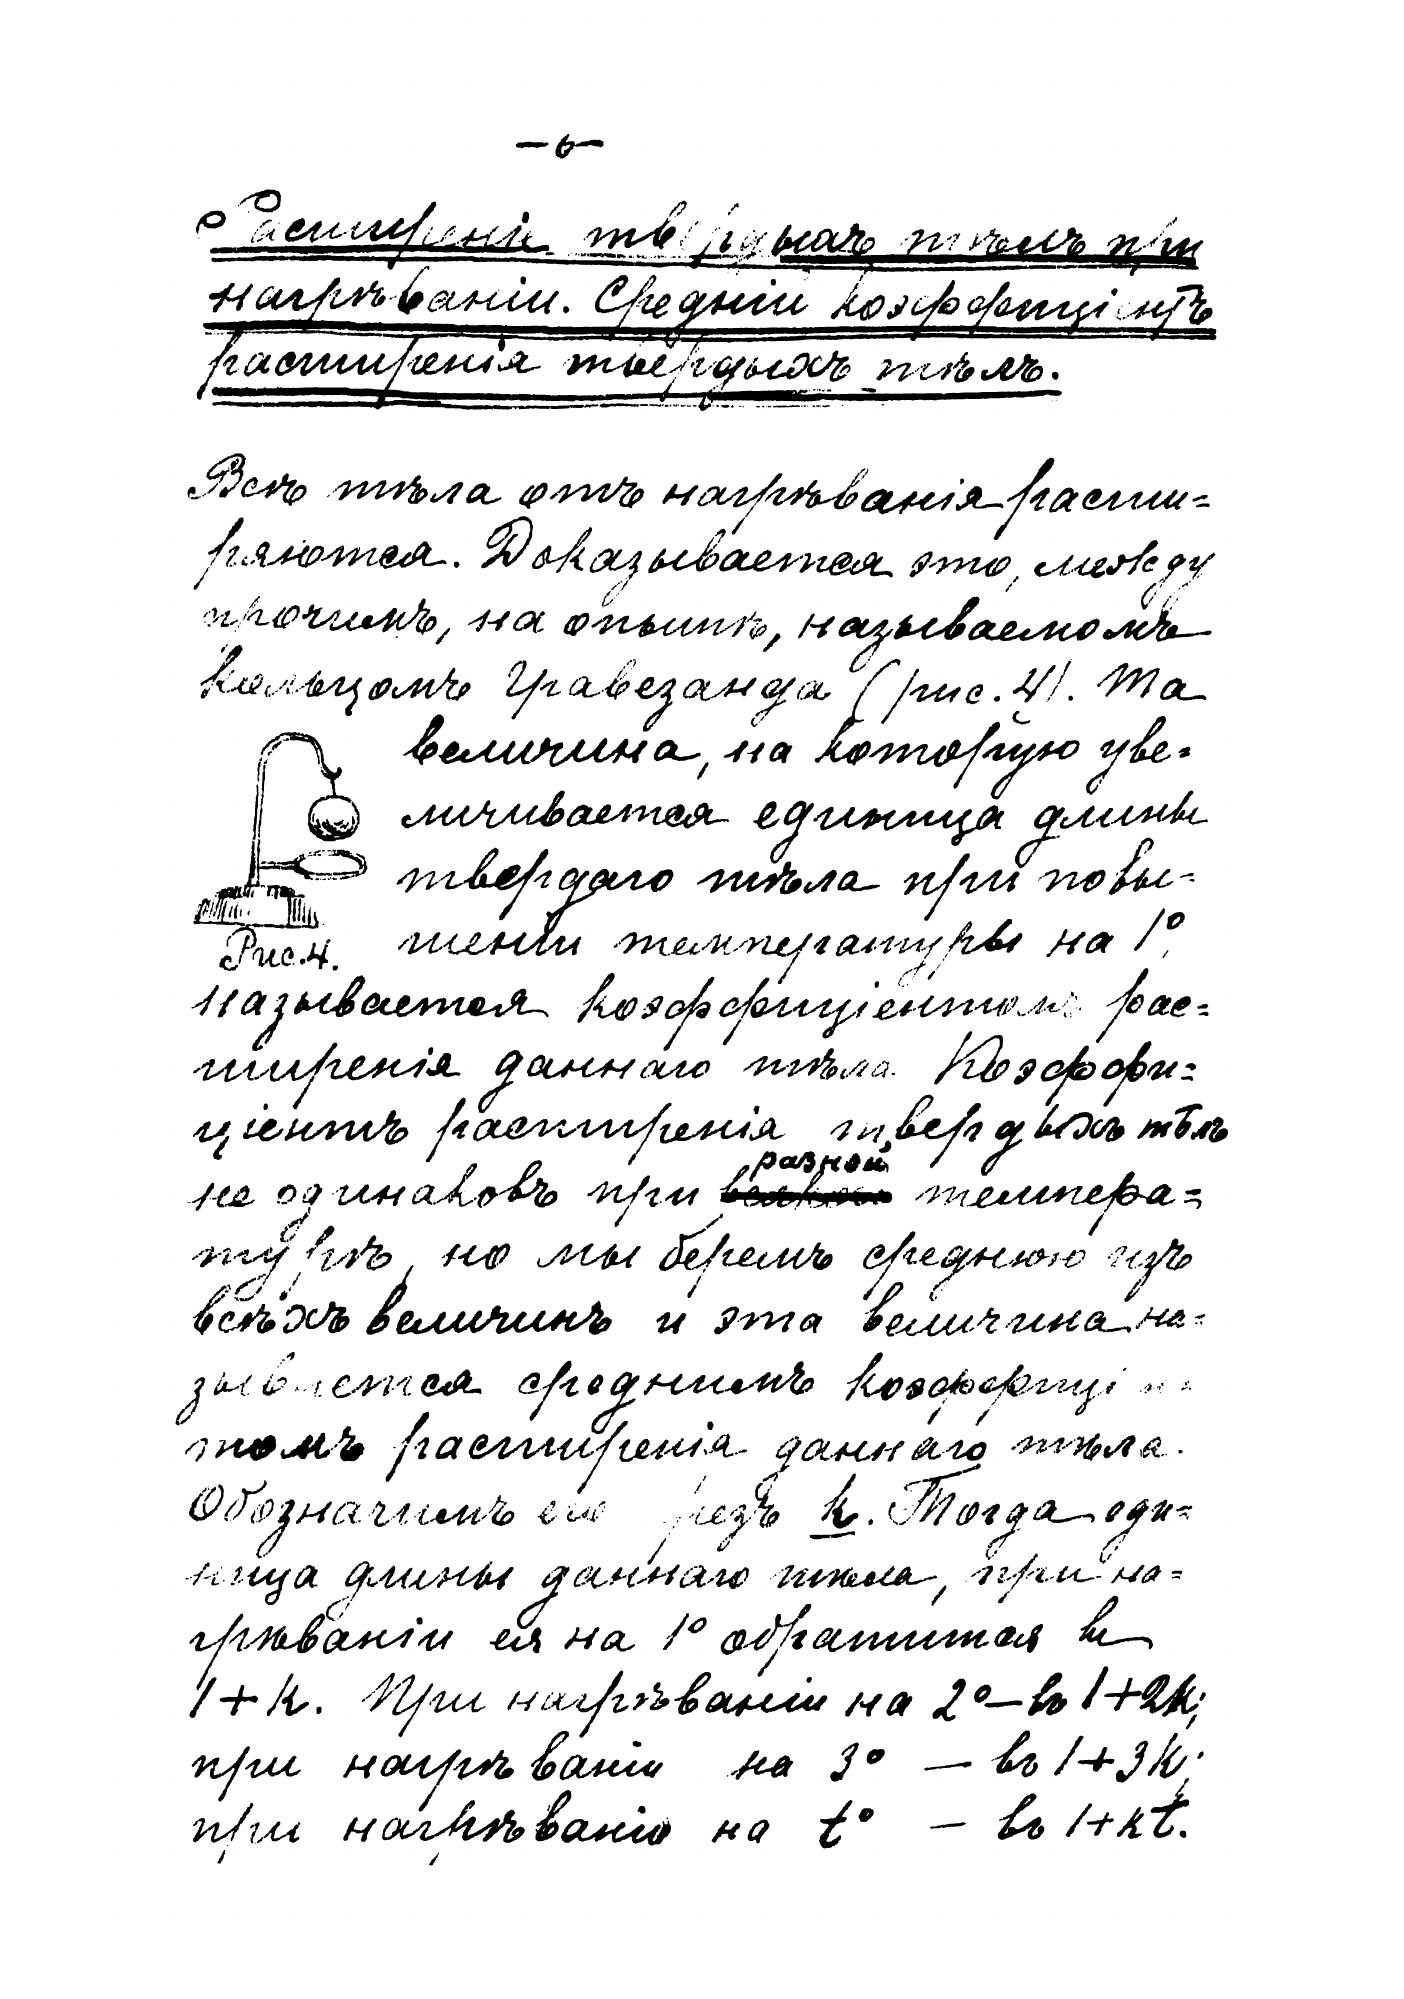 — 6 —
Расширенiе твердыхъ тѣлъ при
нагрѣванiи. Среднiй коэффицiентъ
расширенiя твердыхъ тѣлъ.
Всѣ тѣла отъ нагрѣванiя расши=
ряются. Доказывается это, между
прочимъ, на опытѣ, называемомъ
кольцомъ Гравезанда (рис. 4). Та
величина, на которую уве=
личивается единица длины
твердаго тѣла при повы=
шенiи температуры на 1°,
Рис. 4.
называется коэффицiентомъ рас=
ширенiя даннаго тѣла. Коэффи=
цiентъ расширенiя твердыхъ тѣлъ
разной
не одинаковъ при темпера=
турѣ, но мы беремъ среднюю изъ
всѣхъ величинъ и эта величина на=
зывается среднимъ коэффицiен=
томъ расширенiя даннаго тѣла.
Обозначимъ его чрезъ k. Тогда еди=
ница длины даннаго тѣла, при на=
грѣванiи ея на 1° обратится въ
1+k. При нагрѣванiи на 2° — въ 1+2k;
при нагрѣванiи на 3° — въ 1+3k;
при нагрѣванiи на t° — въ 1+kt.